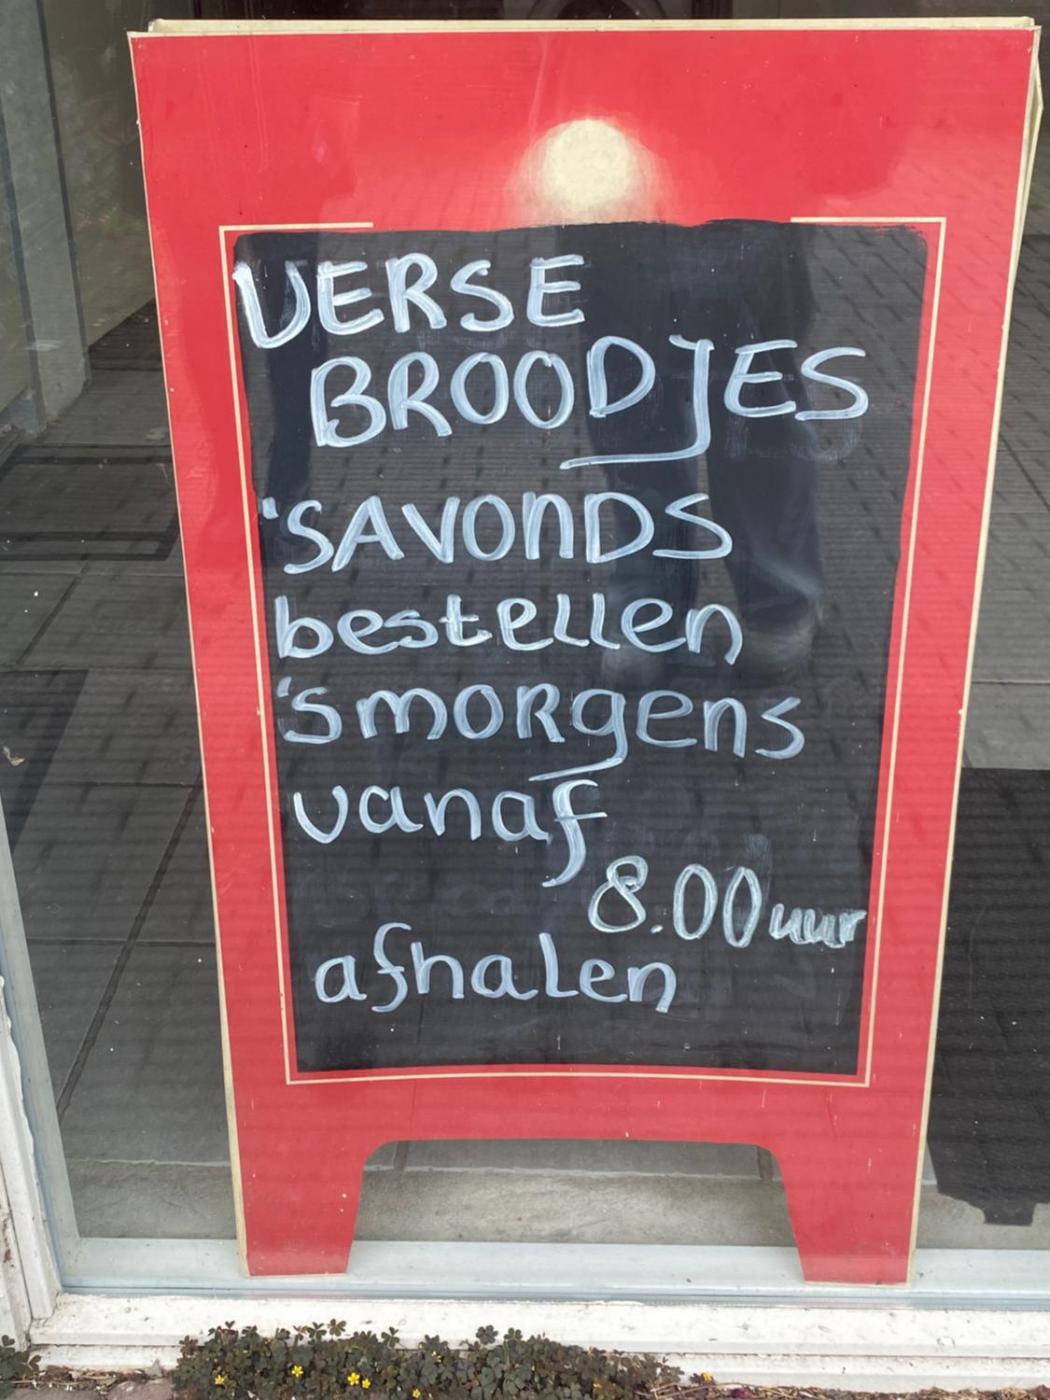 VERSE
BROODJES
'SAVONDS
bestellen
'SMORgens
vanaf
8.00 uur
afhalen